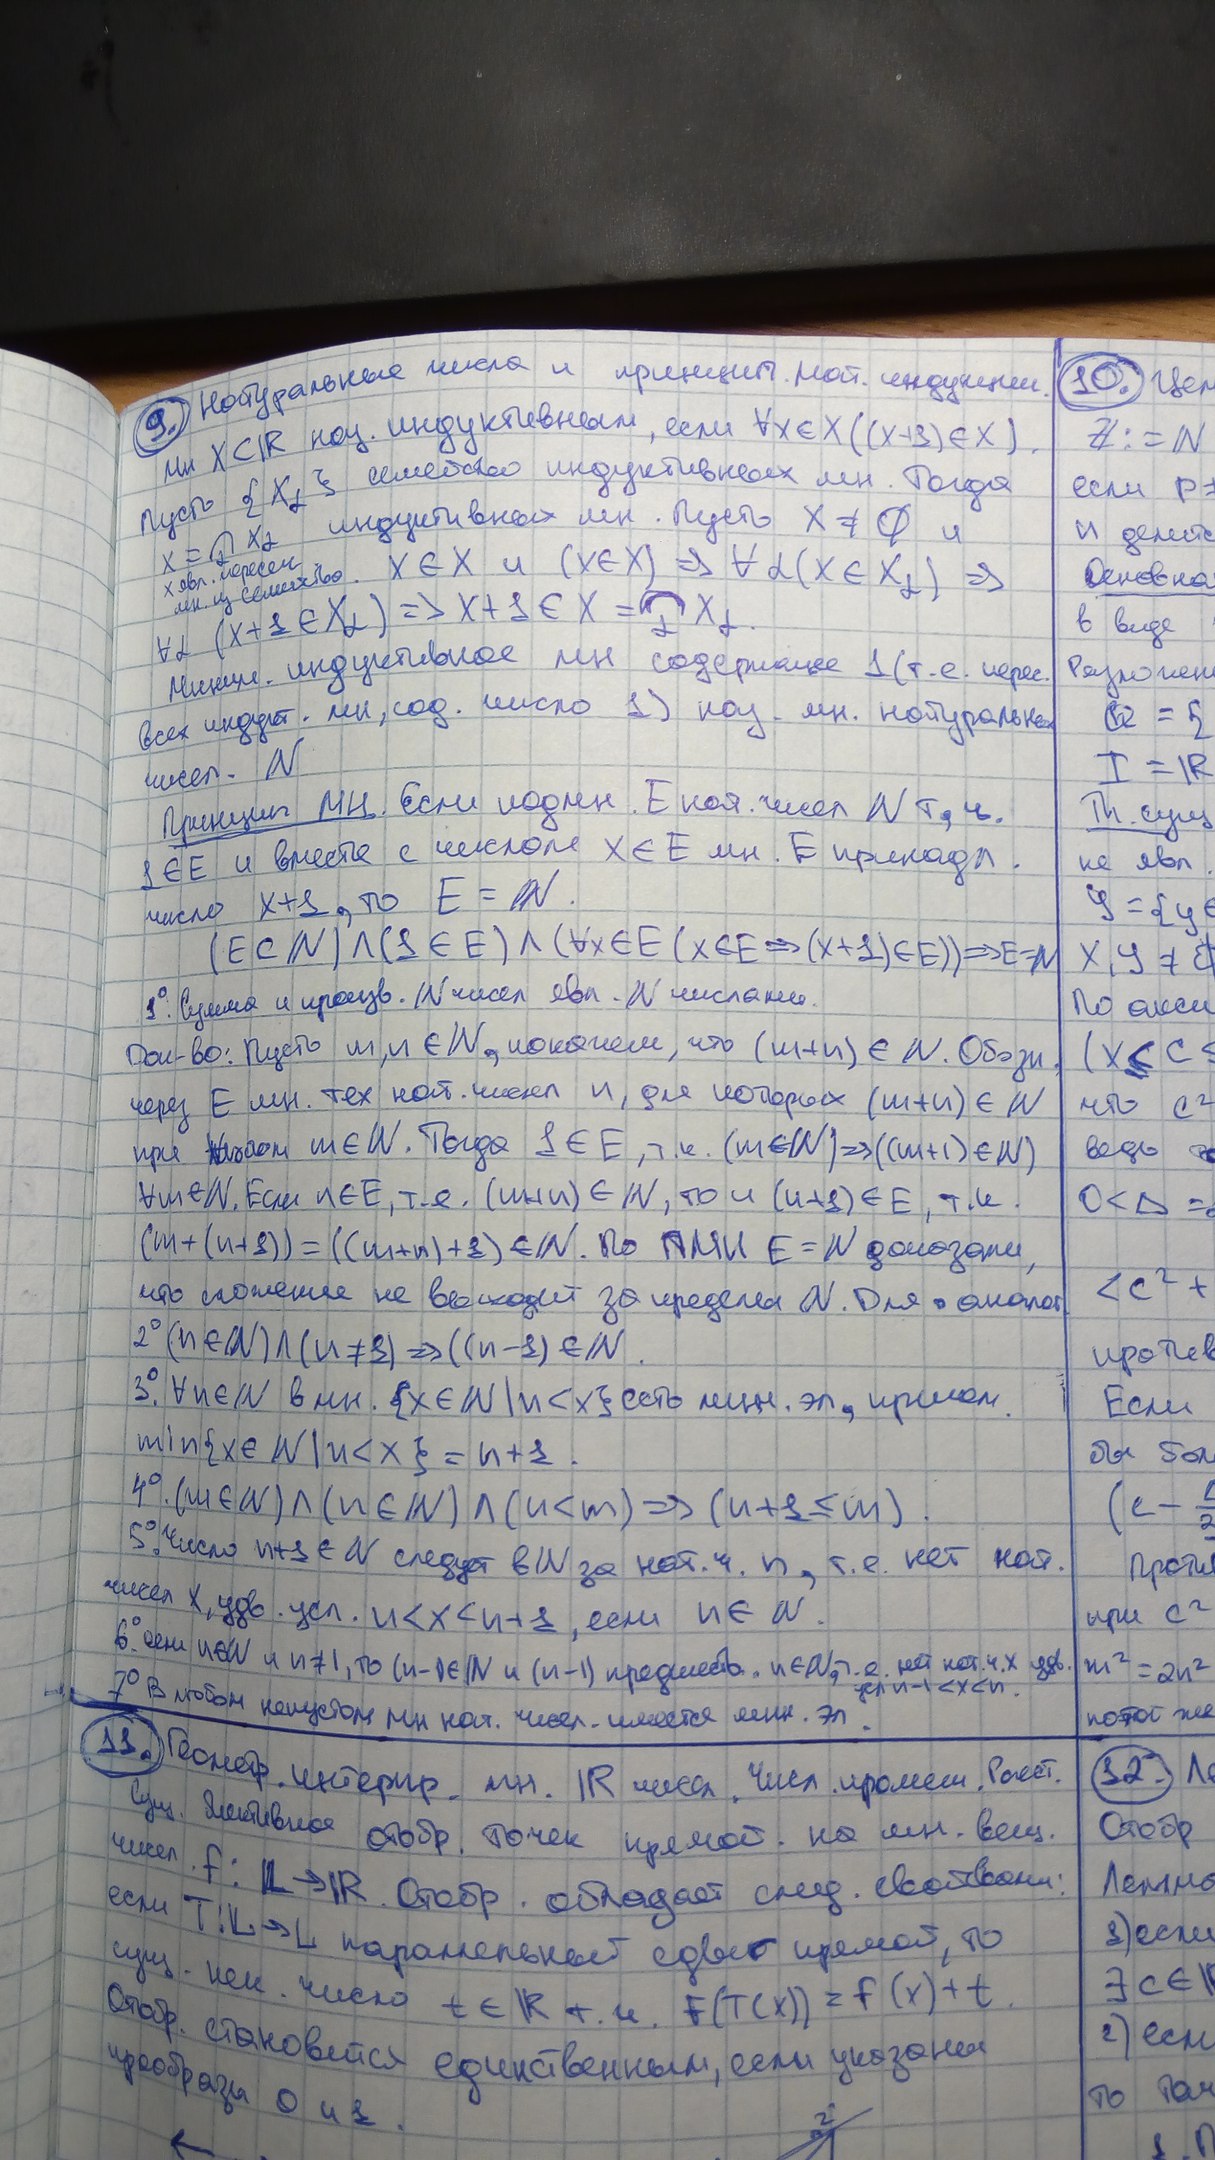 9. Натуральные числа и принцип мат. индукции.
Мн X⊂ℝ наз. индуктивным, если ∀x∈X((x+1)∈X).
Пусть {X_α} семейство индуктивных мн. Тогда
X = ∩_α X_α индуктивных мн. Пусть X ≠ ∅ и
X явл. пересеч.
мн. из семейства. x∈X и (x∈X) => ∀α(x∈X_α) =>
∀α (x+1∈X_α) => x+1∈X = ∩_α X_α.
Миним. индуктивное мн содержащее 1 (т.е. перес.
всех индукт. мн, сод. число 1) наз. мн. натуральных
чисел. ℕ
Принцип МИ. Если подмн. E нат. чисел ℕ т, ч.
1∈E и вместе с числом x∈E мн. E принадл.
число x+1, то E = ℕ.
(E⊂ℕ)∧(1∈E)∧(∀x∈E(x∈E=>(x+1)∈E))=>E=ℕ
1°. Сумма и произв. ℕ чисел явл. ℕ числами.
Док-во: Пусть m,n∈ℕ, покажем, что (m+n)∈ℕ. Обозн.
через E мн. тех нат. чисел n, для которых (m+n)∈ℕ
при любом m∈ℕ. Тогда 1∈E, т.к. (m∈ℕ)=>((m+1)∈ℕ)
∀m∈ℕ. Если n∈E, т.е. (m+n)∈ℕ, то и (n+1)∈E, т.к.
(m+(n+1))=((m+n)+1)∈ℕ. По ПМИ E=ℕ доказали,
что сложение не выходит за пределы ℕ. Для • аналог.
2° (n∈ℕ)∧(n≠1)=>((n-1)∈ℕ.
3°. ∀n∈ℕ в мн. {x∈ℕ|n<x} есть мин. эл, причем.
min{x∈ℕ|n<x} = n+1.
4°. (m∈ℕ)∧(n∈ℕ)∧(n<m)=>(n+1≤m).
5°. Число n+1∈ℕ следует в ℕ за нат. ч. n, т.е. нет нат.
чисел x, удв. усл. n<x<n+1, если n∈ℕ.
6°. если n∈ℕ и n≠1, то (n-1)∈ℕ и (n-1) предшеств. n∈ℕ, т.е. нет нат. ч. x удв.
усл n-1<x<n.
7° В любом непустом мн нат. чисел имеется мин. эл.
11. Геометр. интерпр. мн. ℝ чисел. Числ. промеж. Расст.
Сущ. биективное отобр. точек прямой на мн. вещ.
чисел. f: L→ℝ. Отобр. обладает след. свойствами:
если T:L→L параллельный сдвиг прямой, то
сущ. нек. число t∈ℝ т.ч. f(T(x)) = f(x)+t.
Отобр. становится единственным, если указаны
прообразы 0 и 1.
10.
ℤ:=ℕ
если p
и делит
Основна
в виде
ℚ = {
I = ℝ
Th. сущ
не явл.
Y={y∈
X,Y ≠
По акси
(x≤c≤
что c²
ведь
0<Δ=
<c²+
против
Если
(c-
при c²
m²=2n²
12. Ле
Отобр
1) если
∃c∈ℝ
2) если
то точ